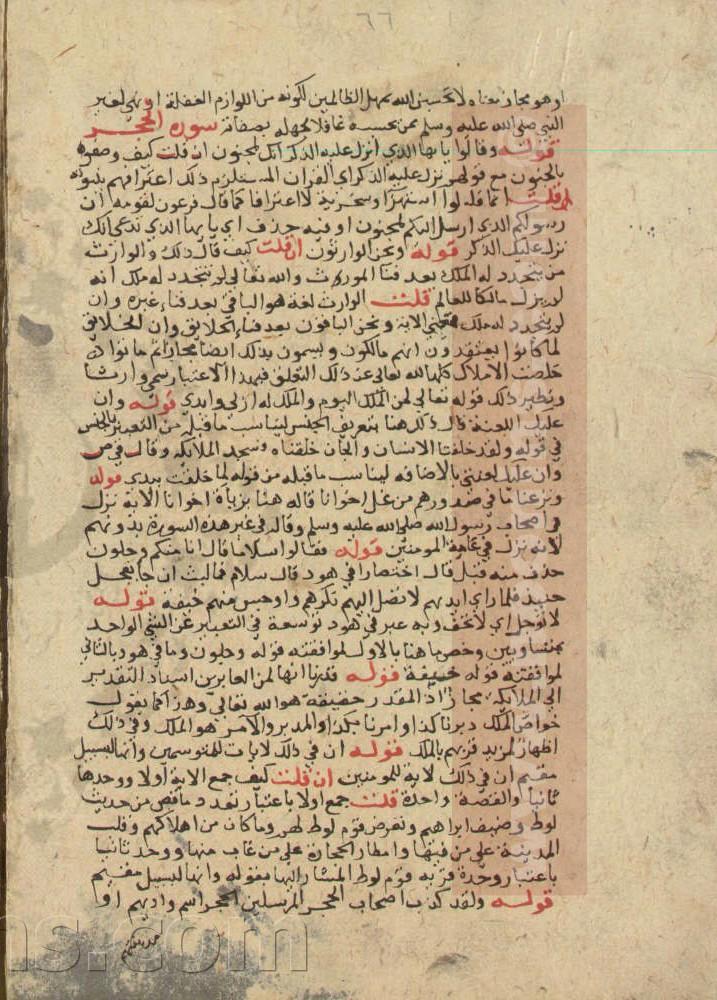 ٦٦
او هو مجاز معناه لا تحسبن الله يمهل الظالمين لكونه من اللوازم الغفلة او نهي لغير
النبي صلي الله عليه وسلم ممن يحسبه غافلا لجهله بصفاته سورة الحجر
قوله وقالوا يا يها الذي انزل عليه الذكر انك لمجنون ان قلت كيف وصفوه
بالجنون مع قولهم نزل عليه الذكر اي القران المستلزم ذلك اعترافهم بنبوته
قلت انما قالوا استهزا وسخرية لا اعترافا كما قال فرعون لقومه ان
رسولكم الذي ارسل اليكم لمجنون او فيه حذف اي يا يها الذي تدعي انك
نزل عليك الذكر قوله ونحن الوارثون ان قلت كيف قال ذلك والوارث
من يتجدد له الملك بعد فنا الموروث والله تعالي لم يتجدد له ملك انه
لم يزل مالكا للعالم قلت الوارث لغة هو الباقي بعد فناء غيره وان
لم يتجدد له ملك فمعني الاية ونحن الباقون بعد فناء الخلايق وان الخلايق
لما كانوا يعتقدون انهم مالكون ويسمون بذلك ايضا مجازا ثم ماتوا
خلصت الاملاك كلها لله تعالي عن ذلك التعلق فبهذا الاعتبار سمي وارثا
ونظير ذلك قوله تعالي لمن الملك اليوم والملك له ازلي وابدي قوله وان
عليك اللعنة قال ذلك هنا بتعريف الجنس ليناسب ما قبله من التعبير بالجنس
في قوله ولقد خلقنا الانسان والجان خلقناه وسجد الملايكة وقال في ص
وان عليك لعنتي بالاضافة ليناسب ما قبله من قوله لما خلقت بيدي قوله
ونزعنا ما في صدورهم من غل اخوانا قاله هنا بزيادة اخوانا الاية نزلت
في اصحاب رسول الله صلي الله عليه وسلم وقاله في غير هذه السورة بدونهم
لانه نزل في عامة المومنين قوله فقالوا سلاما قال انا منكم وجلون
حذف منه قبل قال اختصارا في هود قال سلام فما لبث ان جا بعجل
حنيذ فلما راي ايديهم لا تصل اليه نكرهم واوجس منهم خيفة قوله
لا توجل اي لا تخف وبه عبر في هود توسعة في التعبير عن الشي الواحد
بمتساويين وخص ما هنا بالاول لموافقته قوله وجلون وما في هود بالثاني
لموافقته قوله خيفة قوله قدرنا انها لمن الغابرين اسناد التقدير
الي الملايكة مجاز اذ المقدر حقيقة هو الله تعالي وهذا كما يقول
خواص الملك دبرنا كذا وامرنا بكذا والمدبر والامر هو الملك وفي ذلك
اظهار لمزيد قربهم بالملك قوله ان في ذلك لايات للمتوسمين وانها لبسبيل
مقيم ان في ذلك لاية للمومنين ان قلت كيف جمع الاية اولا ووحدها
ثانيا والقصة واحدة قلت جمع اولا باعتبار تعدد ما قص من حديث
لوط وضيف ابراهيم وتعرض قوم لوط لهم وما كان من اهلاكهم وقلب
المدينة علي من فيها وامطار الحجارة علي من غاب منها ووحد ثانيا
باعتبار وحدة قرية قوم لوط المشار اليها بقوله وانها لبسبيل مقيم
قوله ولقد كذب اصحاب الحجر المرسلين الحجر اسم واديهم او
مدينتهم
ns.com